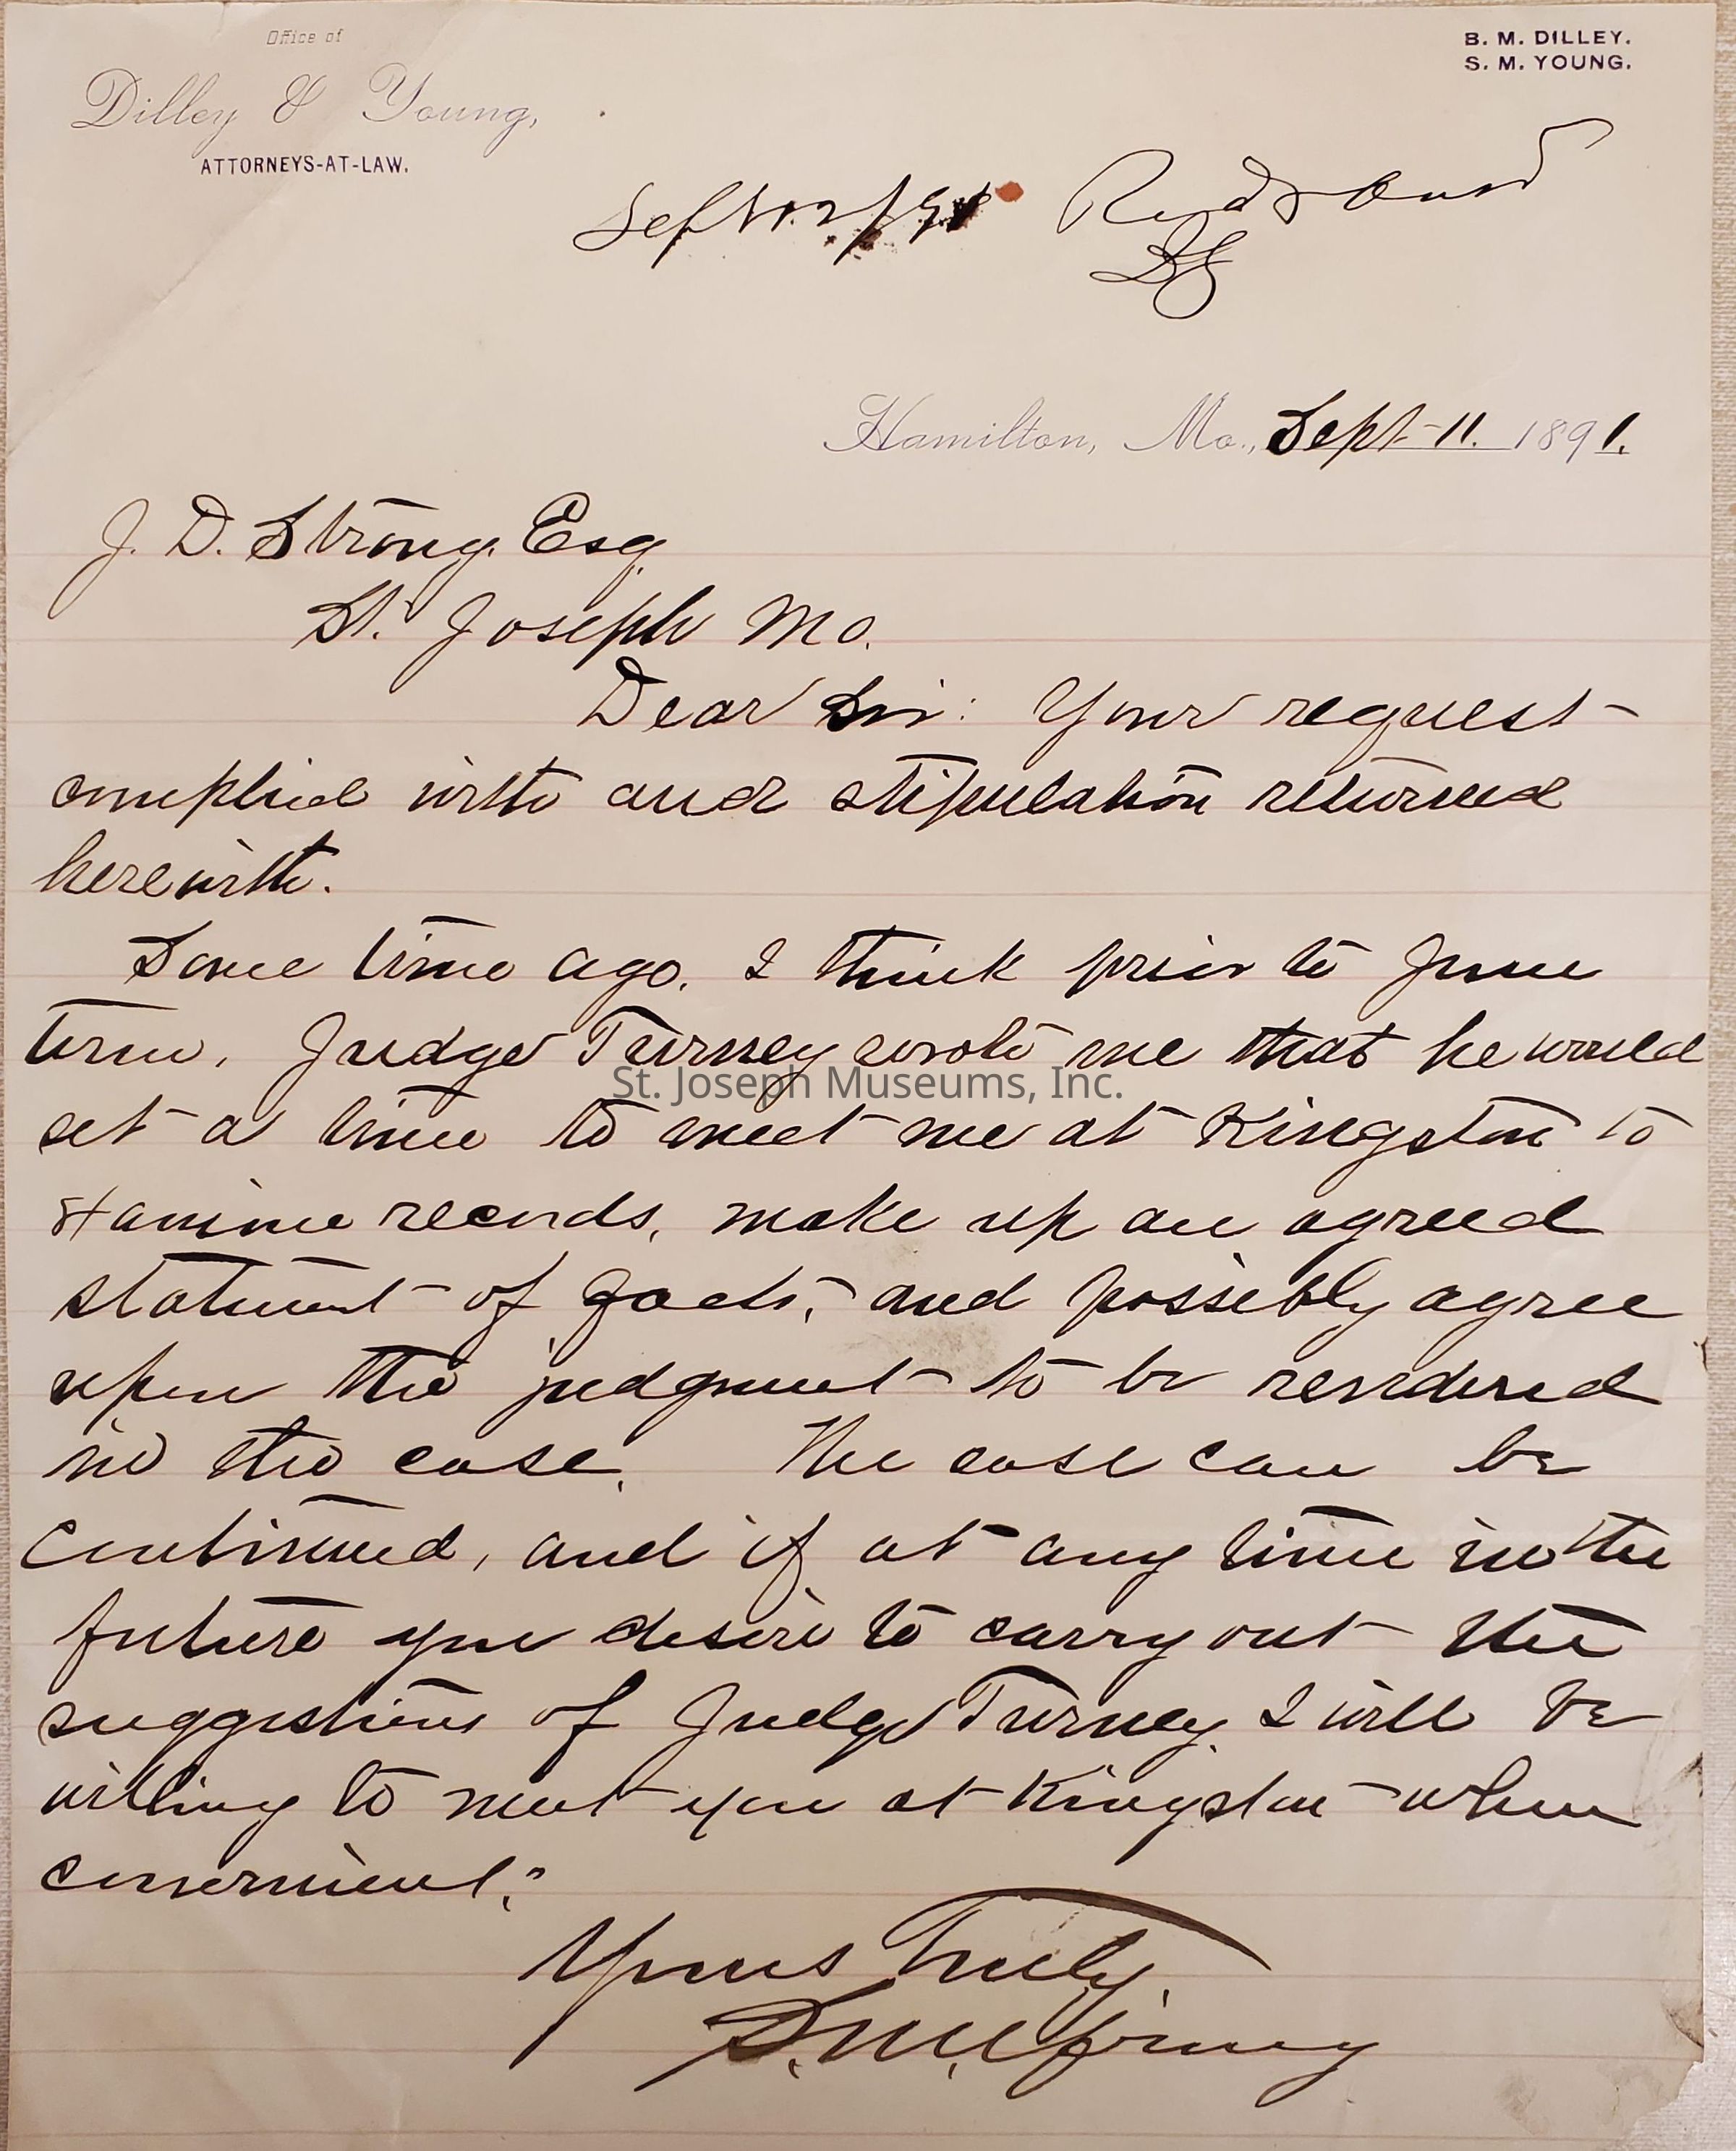 Office of
Dilley & Young,
ATTORNEYS-AT-LAW.
B. M. DILLEY.
S. M. YOUNG.
Sept 12/91 Recd & Ansd
Hamilton, Mo., Sept 11. 1891.
J. D. Strong. Esq
St. Joseph Mo.
Dear Sir: Your request
complied with and stipulation returned
herewith.
Some time ago. I think prior to June
term. Judge Turney wrote me that he would
St. Joseph Museums, Inc.
set a time to meet me at Kingston to
examine records, make up an agreed
statement of facts, and possibly agree
upon the judgment to be rendered
in the case. The case can be
continued, and if at any time in the
future you desire to carry out the
suggestions of Judge Turney. I will be
willing to meet you at Kingston when
convenient.
Yours Truly,
S. M. Young